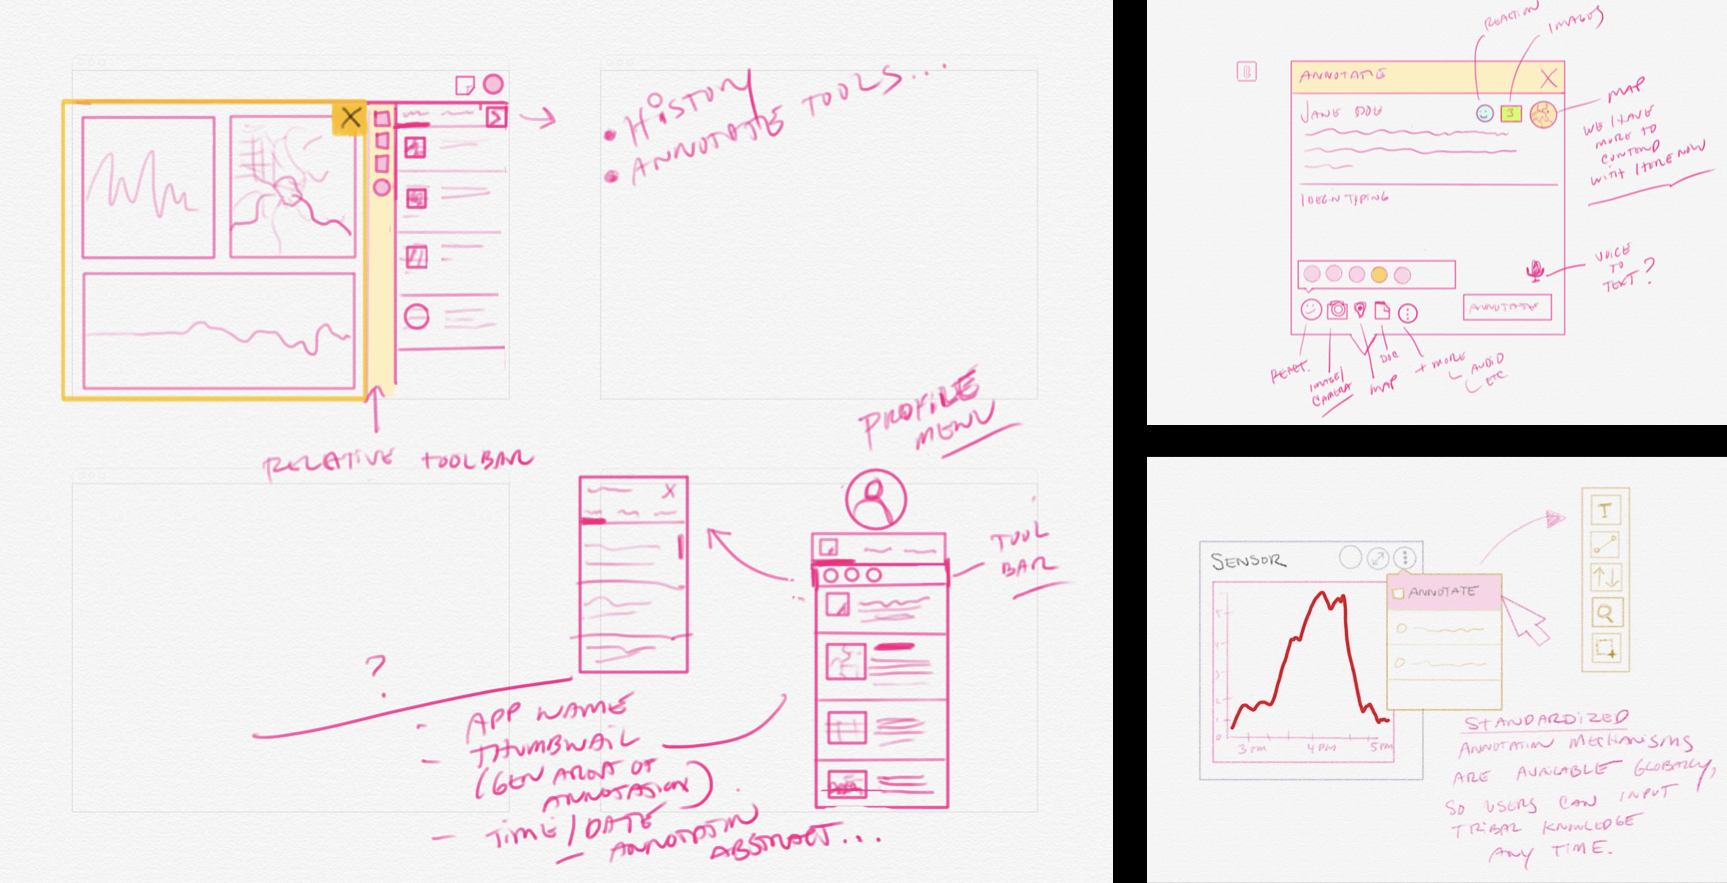 • HISTORY
• ANNOTATE TOOLS...
RELATIVE TOOLBAR
PROFILE
MENU
TOOL
BAR
X
?
- APP NAME
- THUMBNAIL
(GEN AREA OF
ANNOTATION)
- TIME/DATE
- ANNOTATION
ABSTRACT...
REACTION
IMAGES
ANNOTATE
X
JANE DOE
3
MAP
WE HAVE
MORE TO
CONTEND
WITH HERE NOW
BEGIN TYPING
VOICE
TO
TEXT?
ANNOTATE
REACT.
IMAGE/
CAMERA
MAP
DOC
+ MORE
AUDIO
ETC
SENSOR
ANNOTATE
T
3 PM
4 PM
5 PM
STANDARDIZED
ANNOTATION MECHANISMS
ARE AVAILABLE GLOBALLY,
SO USERS CAN INPUT
TRIBAL KNOWLEDGE
ANY TIME.